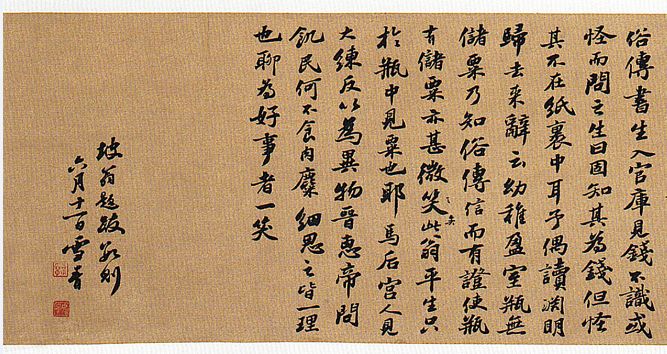 俗傳書生入官庫見錢不識或
怪而問之生曰固知其為錢但怪
其不在紙裹中耳予偶讀淵明
歸去來辭云幼稚盈室瓶無
儲粟乃知俗傳信而有證使瓶
有儲粟亦甚微笑矣此翁平生只
於瓶中見粟也耶馬后宮人見
大練反以為異物晉惠帝問
飢民何不食肉糜細思之皆一理
也聊為好事者一笑
坡翁題跋數則
六月十一日雪